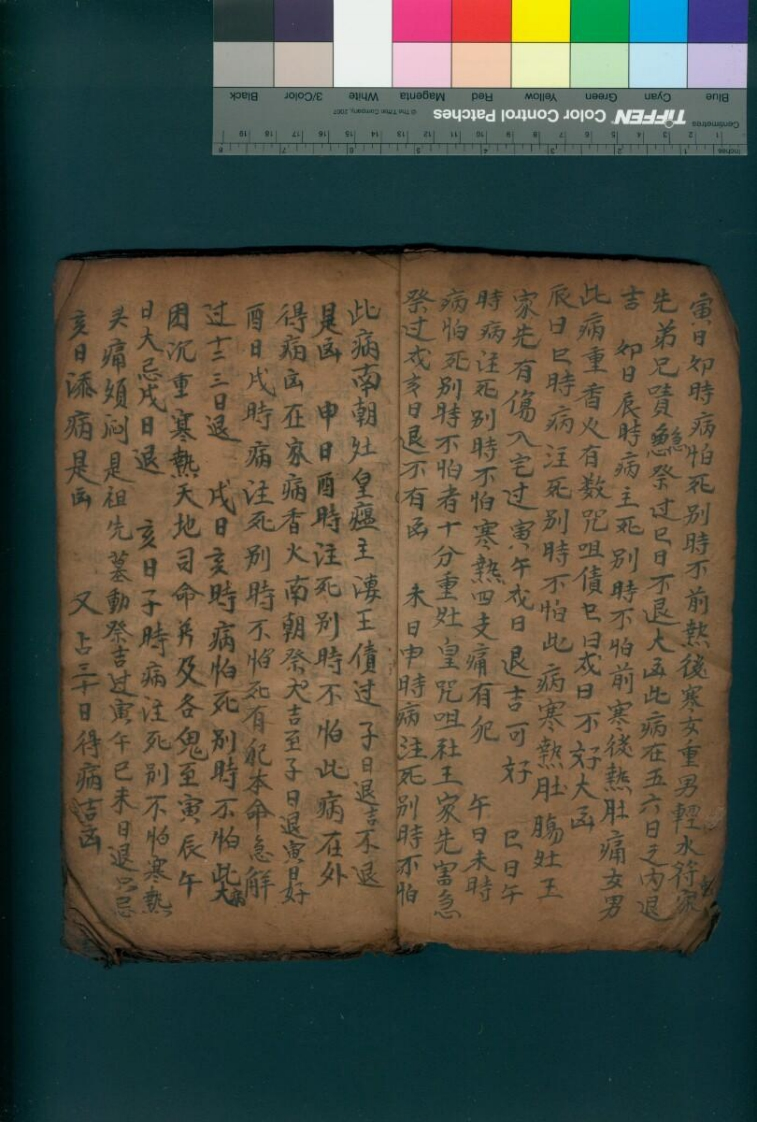 寅日卯時病怕死別時不前熱後寒女重男輕水符家
先弟兄嘖愈祭过巳日不退大凶此病在五六日之内退
吉　卯日辰時病主死別時不怕前寒後熱肚痛女男
此病重香火有数咒咀債巳日戎日不好大凶
辰日巳時病注死別時不怕此病寒熱肚腸灶王
家先有傷入宅过寅午戎日退吉可好　巳日午
時病注死別時不怕寒熱四支痛有犯　午日未時
病怕死別時不怕者十分重灶皇咒咀社王家先當急
祭过戎亥日退不有凶　未日申時病注死別時不怕
此病南朝灶皇瘟主 王債过子日退吉不退
是凶　申日酉時注死別時不怕此病在外
得病凶在家病香火南朝祭大吉至子日退寅日好
酉日戌時病注死別時不怕死有犯本命急解
过十二三日退　戌日亥時病怕死別時不怕此大病
困沉重寒熱天地司命并及各鬼至寅辰午
日大忌戌日退　亥日子時病注死別不怕寒熱
头痛煩悶是祖先墓動祭吉过寅午巳未日退只忌
亥日添病是凶　又占三十日得病吉凶
TIFFEN Color Control Patches
© The Tiffen Company, 2007
Centimetres
Inches
Blue Cyan Green Yellow Red Magenta White 3/Color Black